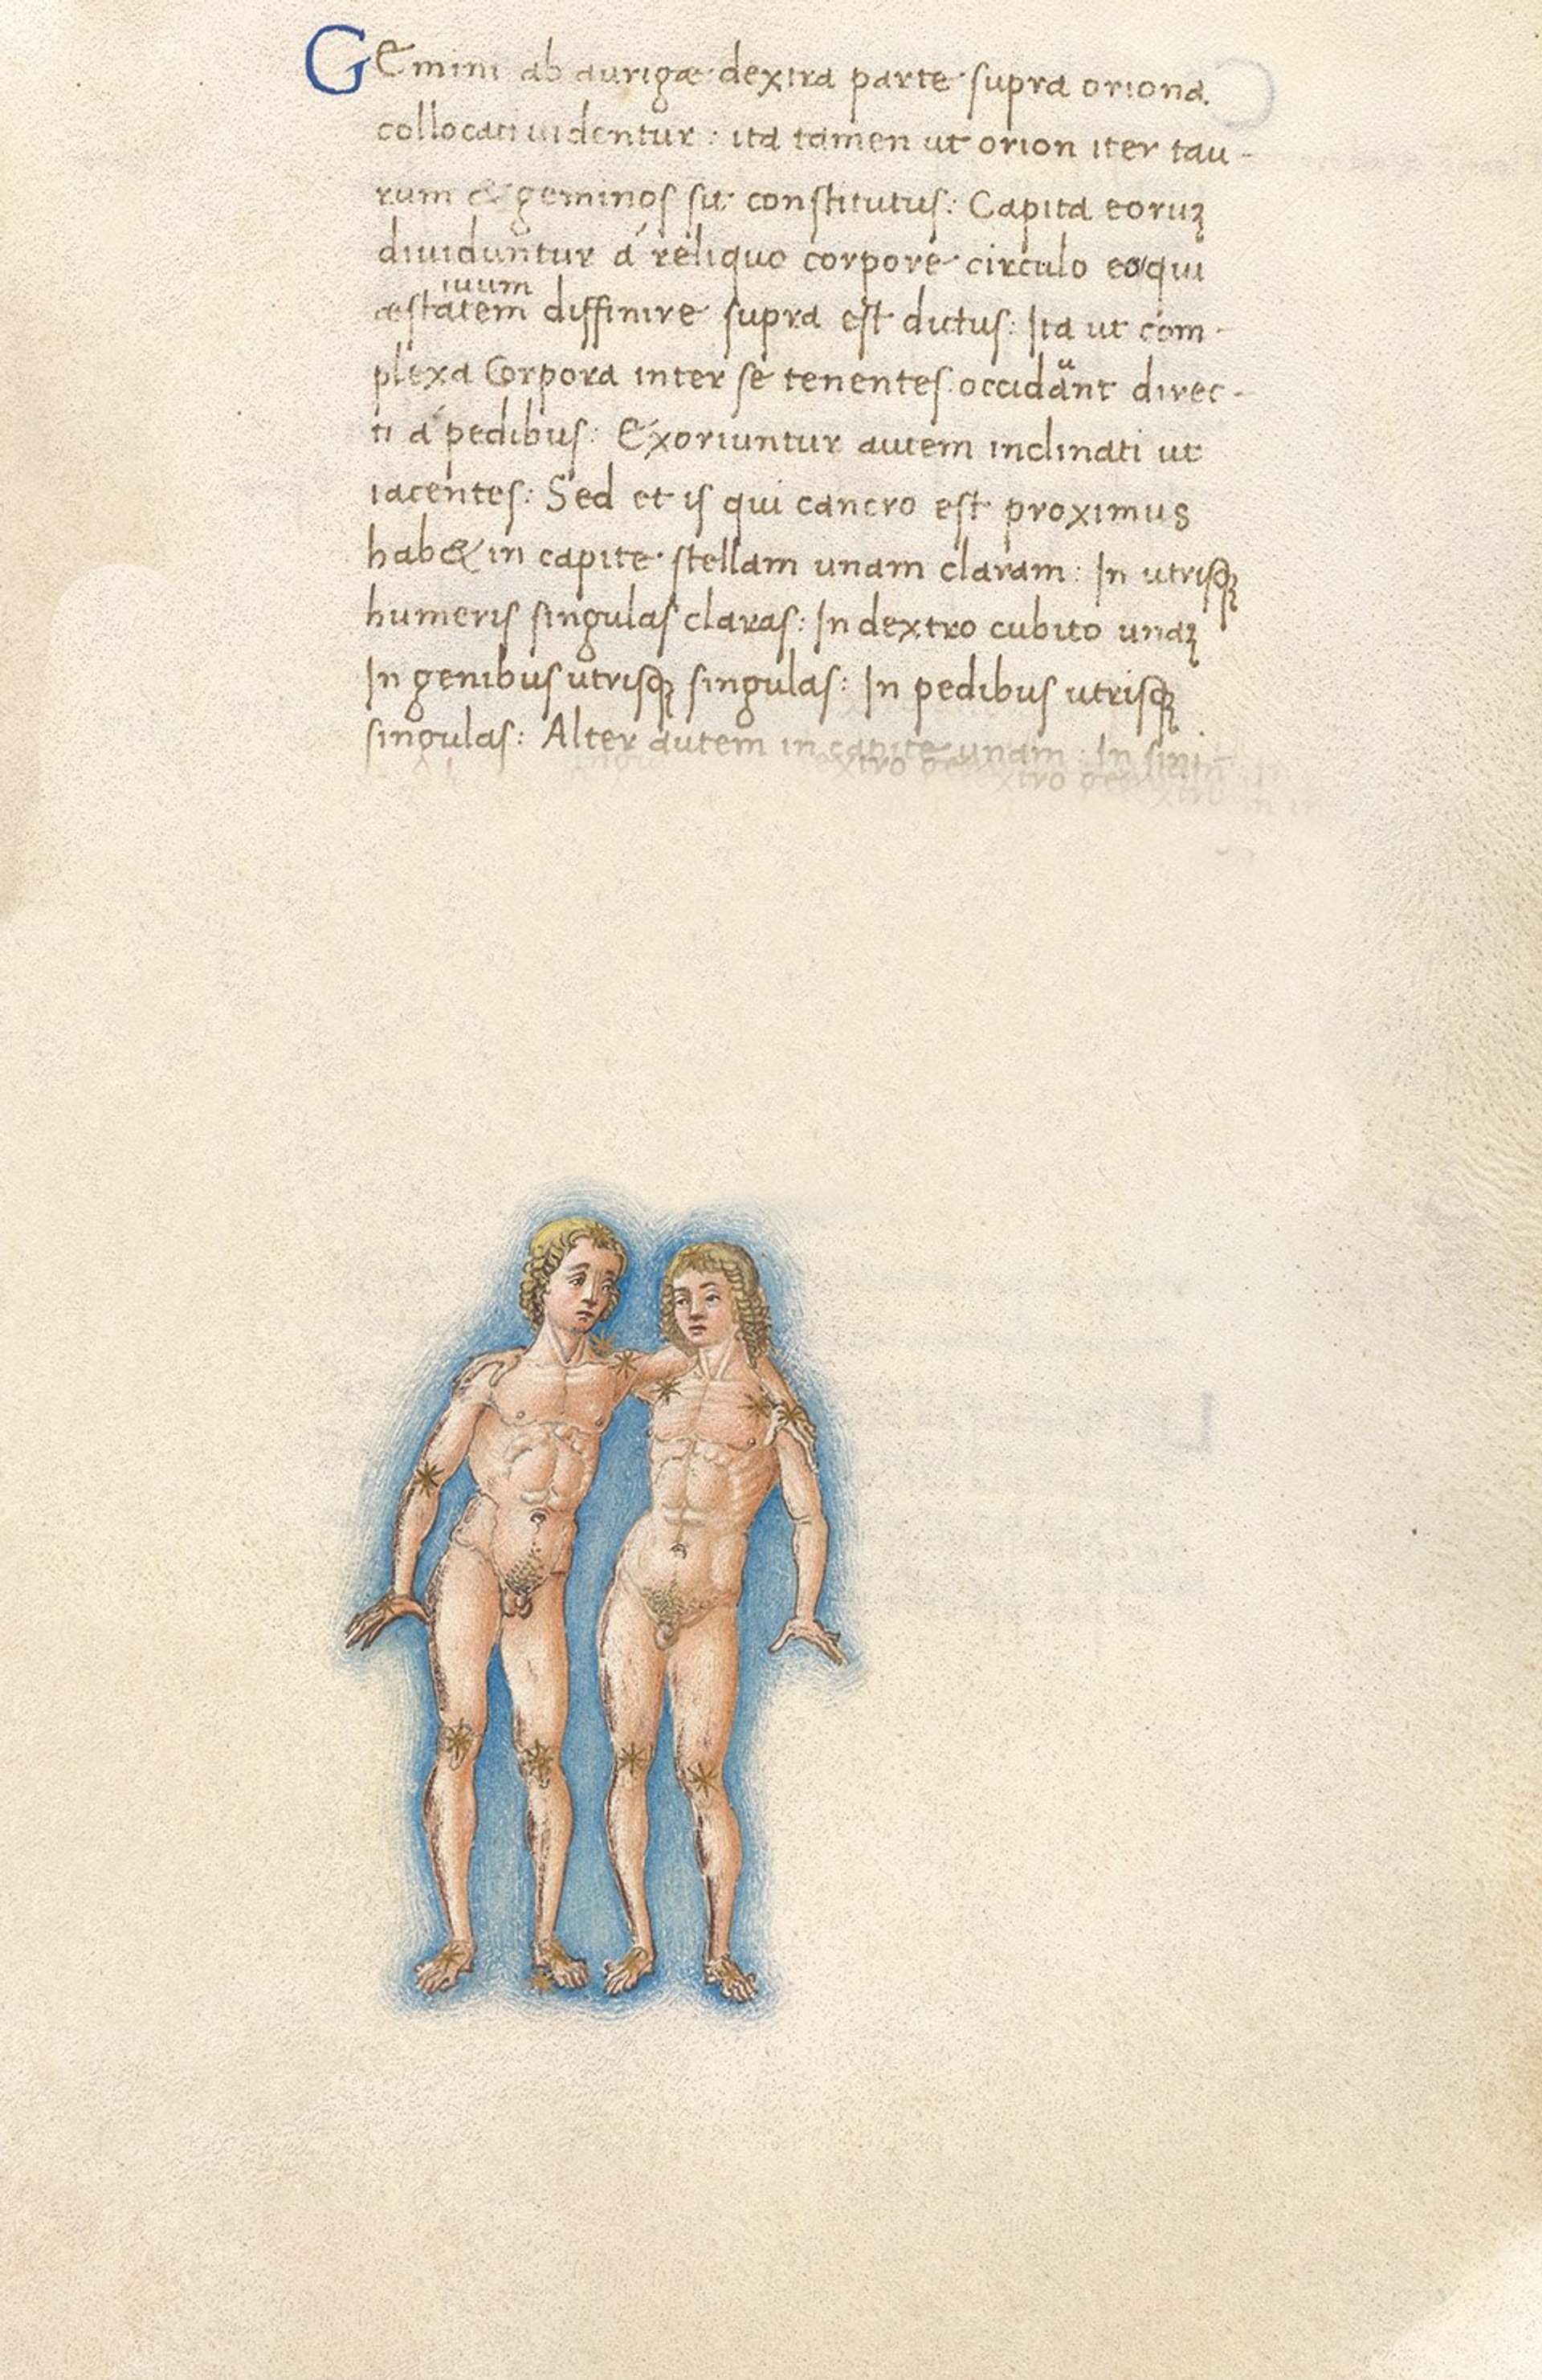 GEmini ab aurigæ dextra parte supra oriona.
collocati uidentur: ita tamen ut orion iter tau-
rum & geminos sit constitutus: Capita eoruꝫ
diuiduntur á reliquo corpore circulo eo qui
iuum
æstatem diffinire supra est dictus: Ita ut com-
plexa Corpora inter se tenentes occidant direc-
u
ti á pedibus: Exoriuntur autem inclinati ut
iacentes: Sed et is qui cancro est proximus
hab& in capite stellam unam claram: In utrisqꝫ
humeris singulas claras: In dextro cubito unaꝫ
In genibus utrisqꝫ singulas: In pedibus utrisqꝫ
singulas: Alter autem in capite unam: In sini-